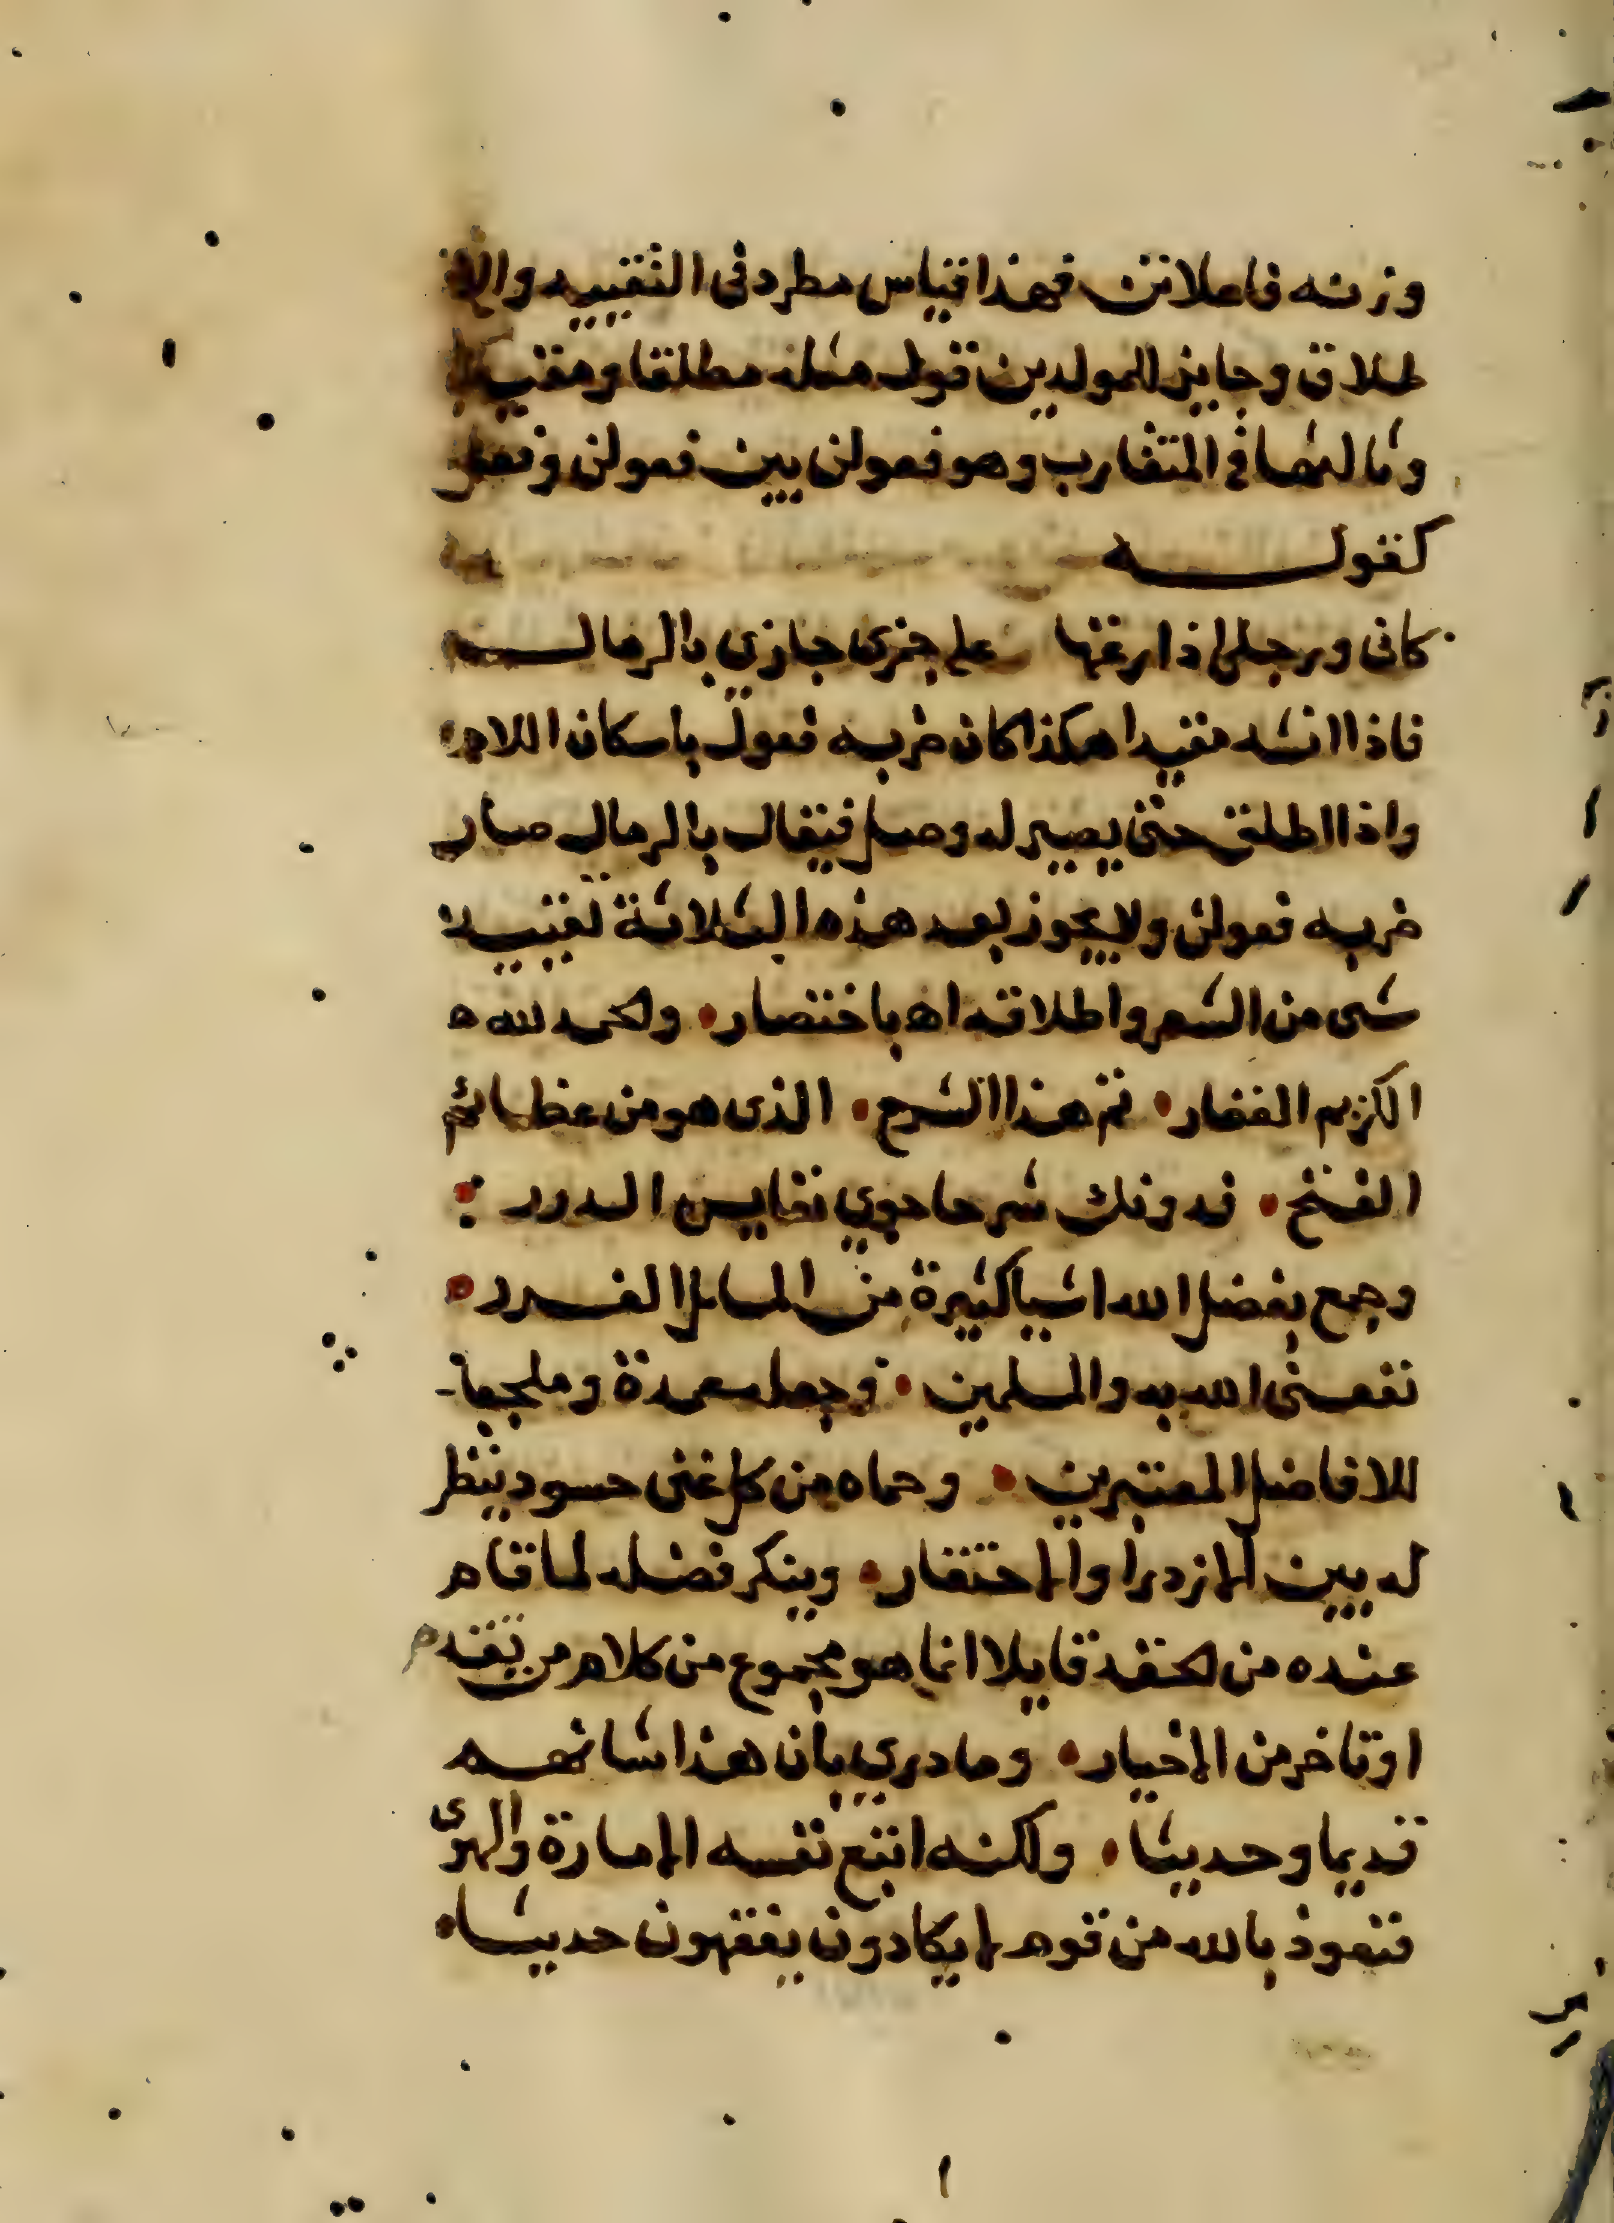 وزنه فاعلاتن فهذا قياس مطرد في التقييد والا
طلاق وجايز للمولدين قول مثله مطلقا ومقيدا
وثالثها في المتقارب وهو فعولن بين فعولن وفعول
كقوله
كاني ورحلي اذا رعتها على جمزى جازي بالرمال
فاذا انشد مقيدا هكذا كان ضربه فعول باسكان اللام
واذا اطلق حتى يصير له وصل فيقال بالرمالي صار
ضربه فعولن ولا يجوز بعد هذه الثلاثة تقييد
شى من الشعر واطلاقه اه باختصار ولحمد لله ه
الكريم الغفار تم هذا الشرح الذى هو من عظائم
الفتح فدونك شرحا حوي نفايس الدرر
وجمع بفضل الله اشيا كثيرة من المسايل الغرر
نفعنى الله به والمسلمين وجعله عمدة وملجعا
للافاضل المعتبرين وحماه من كل غبى حسود ينظر
له بعين الازدرا والاحتقار وينكر فضله لما قام
عنده من لحقد قايلا انما هو مجموع من كلام من تقدم
او تاخر من الاخيار وما دري بان هذا شانهم
قديما وحديثا ولكنه اتبع نفسه الامارة والهوى
فنعوذ بالله من قوم لا يكادون يفقهون حديثا